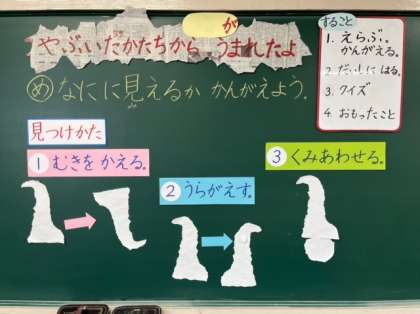 が
やぶいたかたちから うまれたよ
め なにに見えるか かんがえよう。
み
すること
1. えらぶ。
かんがえる。
2. だいしに はる。
3. クイズ
4. おもったこと
見つけかた
① むきを かえる。
② うらがえす。
③ くみあわせる。